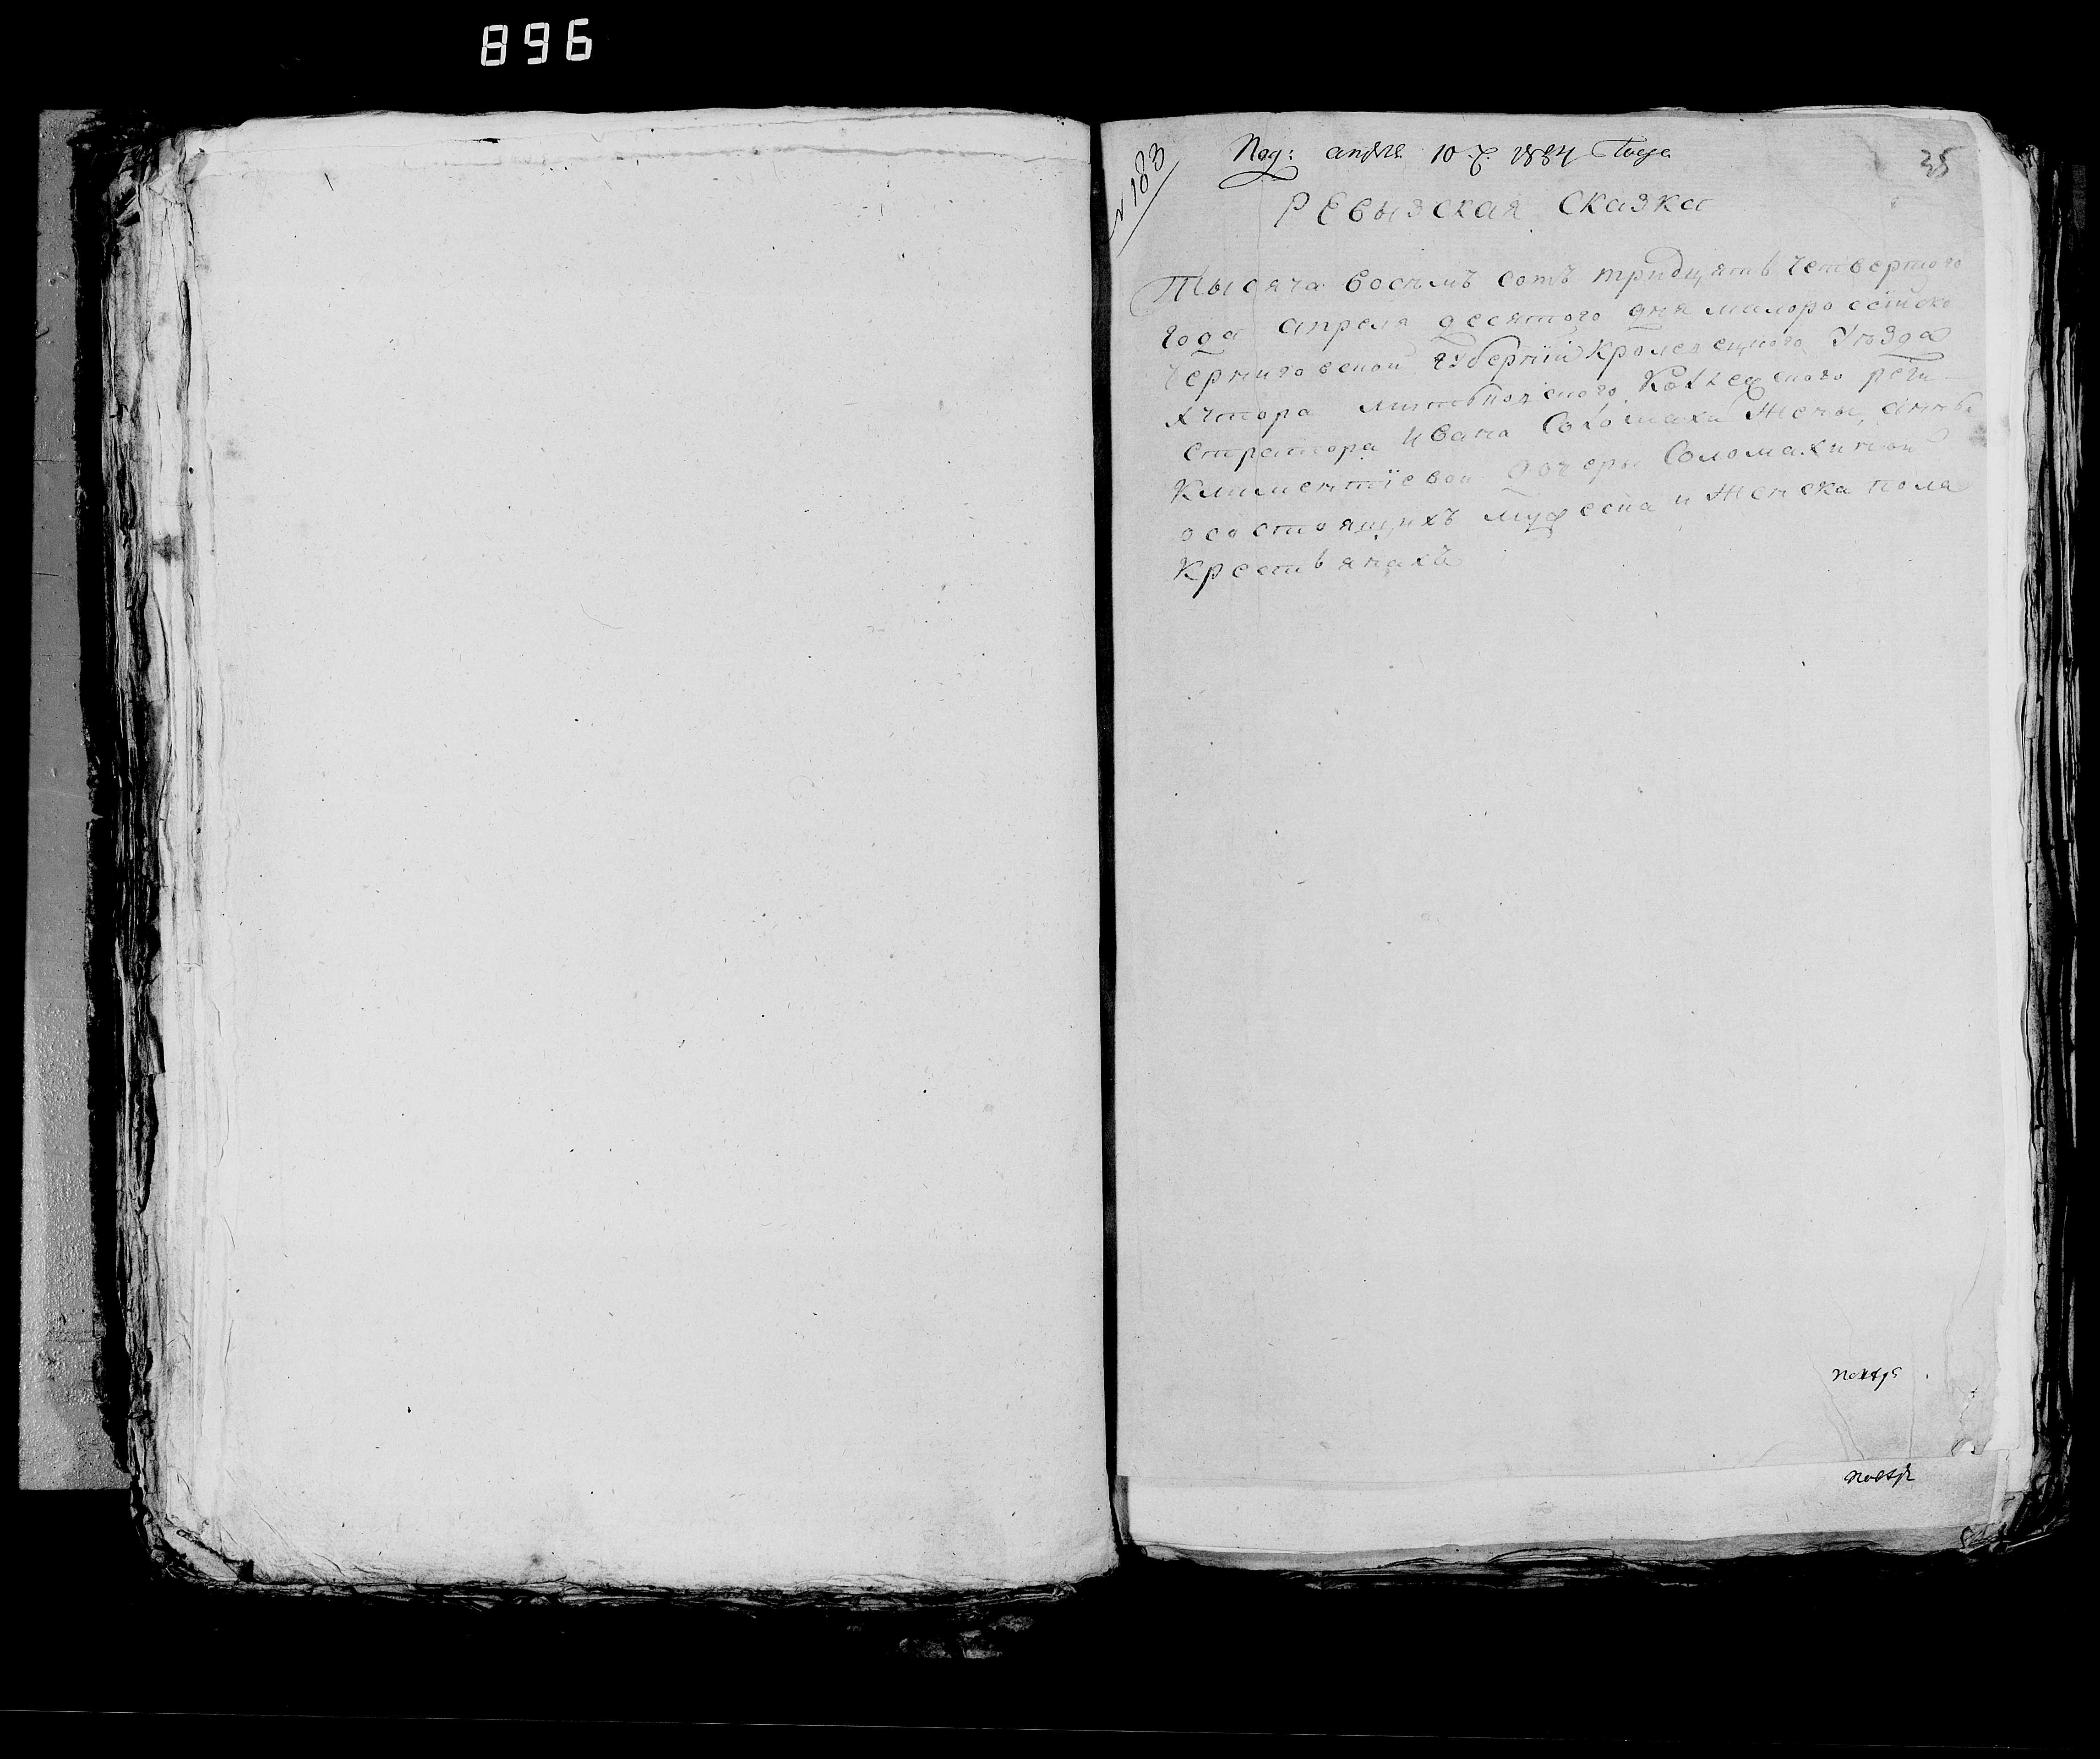 896
№ 183
Под: апреля 10 д. 1834 Года
35
РЕвызская Сказка
Тысяча восъмъ сотъ тридцять четвертого
года апреля десятого дня малоросейско
Черниговской Губернїи Кролевецкого Уезда
хутора Коллежского реги-
стратора Ивана Соломахи Жены, Анны
Климентїевой дочеры Соломахиной
осостоящихъ мужеска и Женска пола
Крестьянахъ